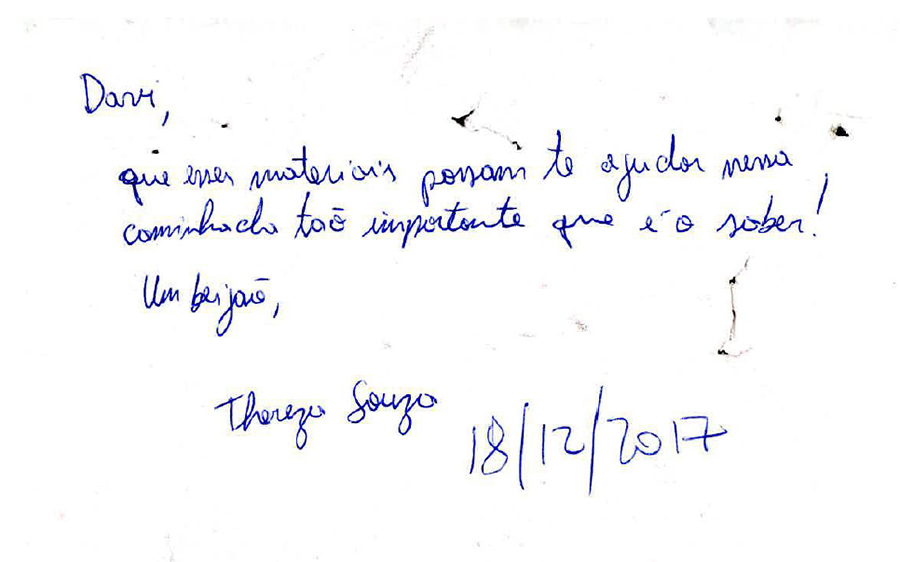 Davi,
que esses materiais possam te ajudar nessa
caminhada tão importante que é o saber!
Um beijão,
Thereza Souza
18/12/2017